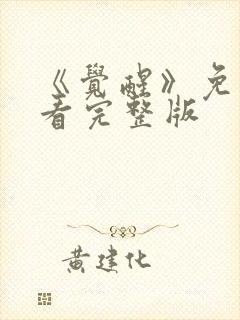 《覺醒》免
看完整版
黄建化